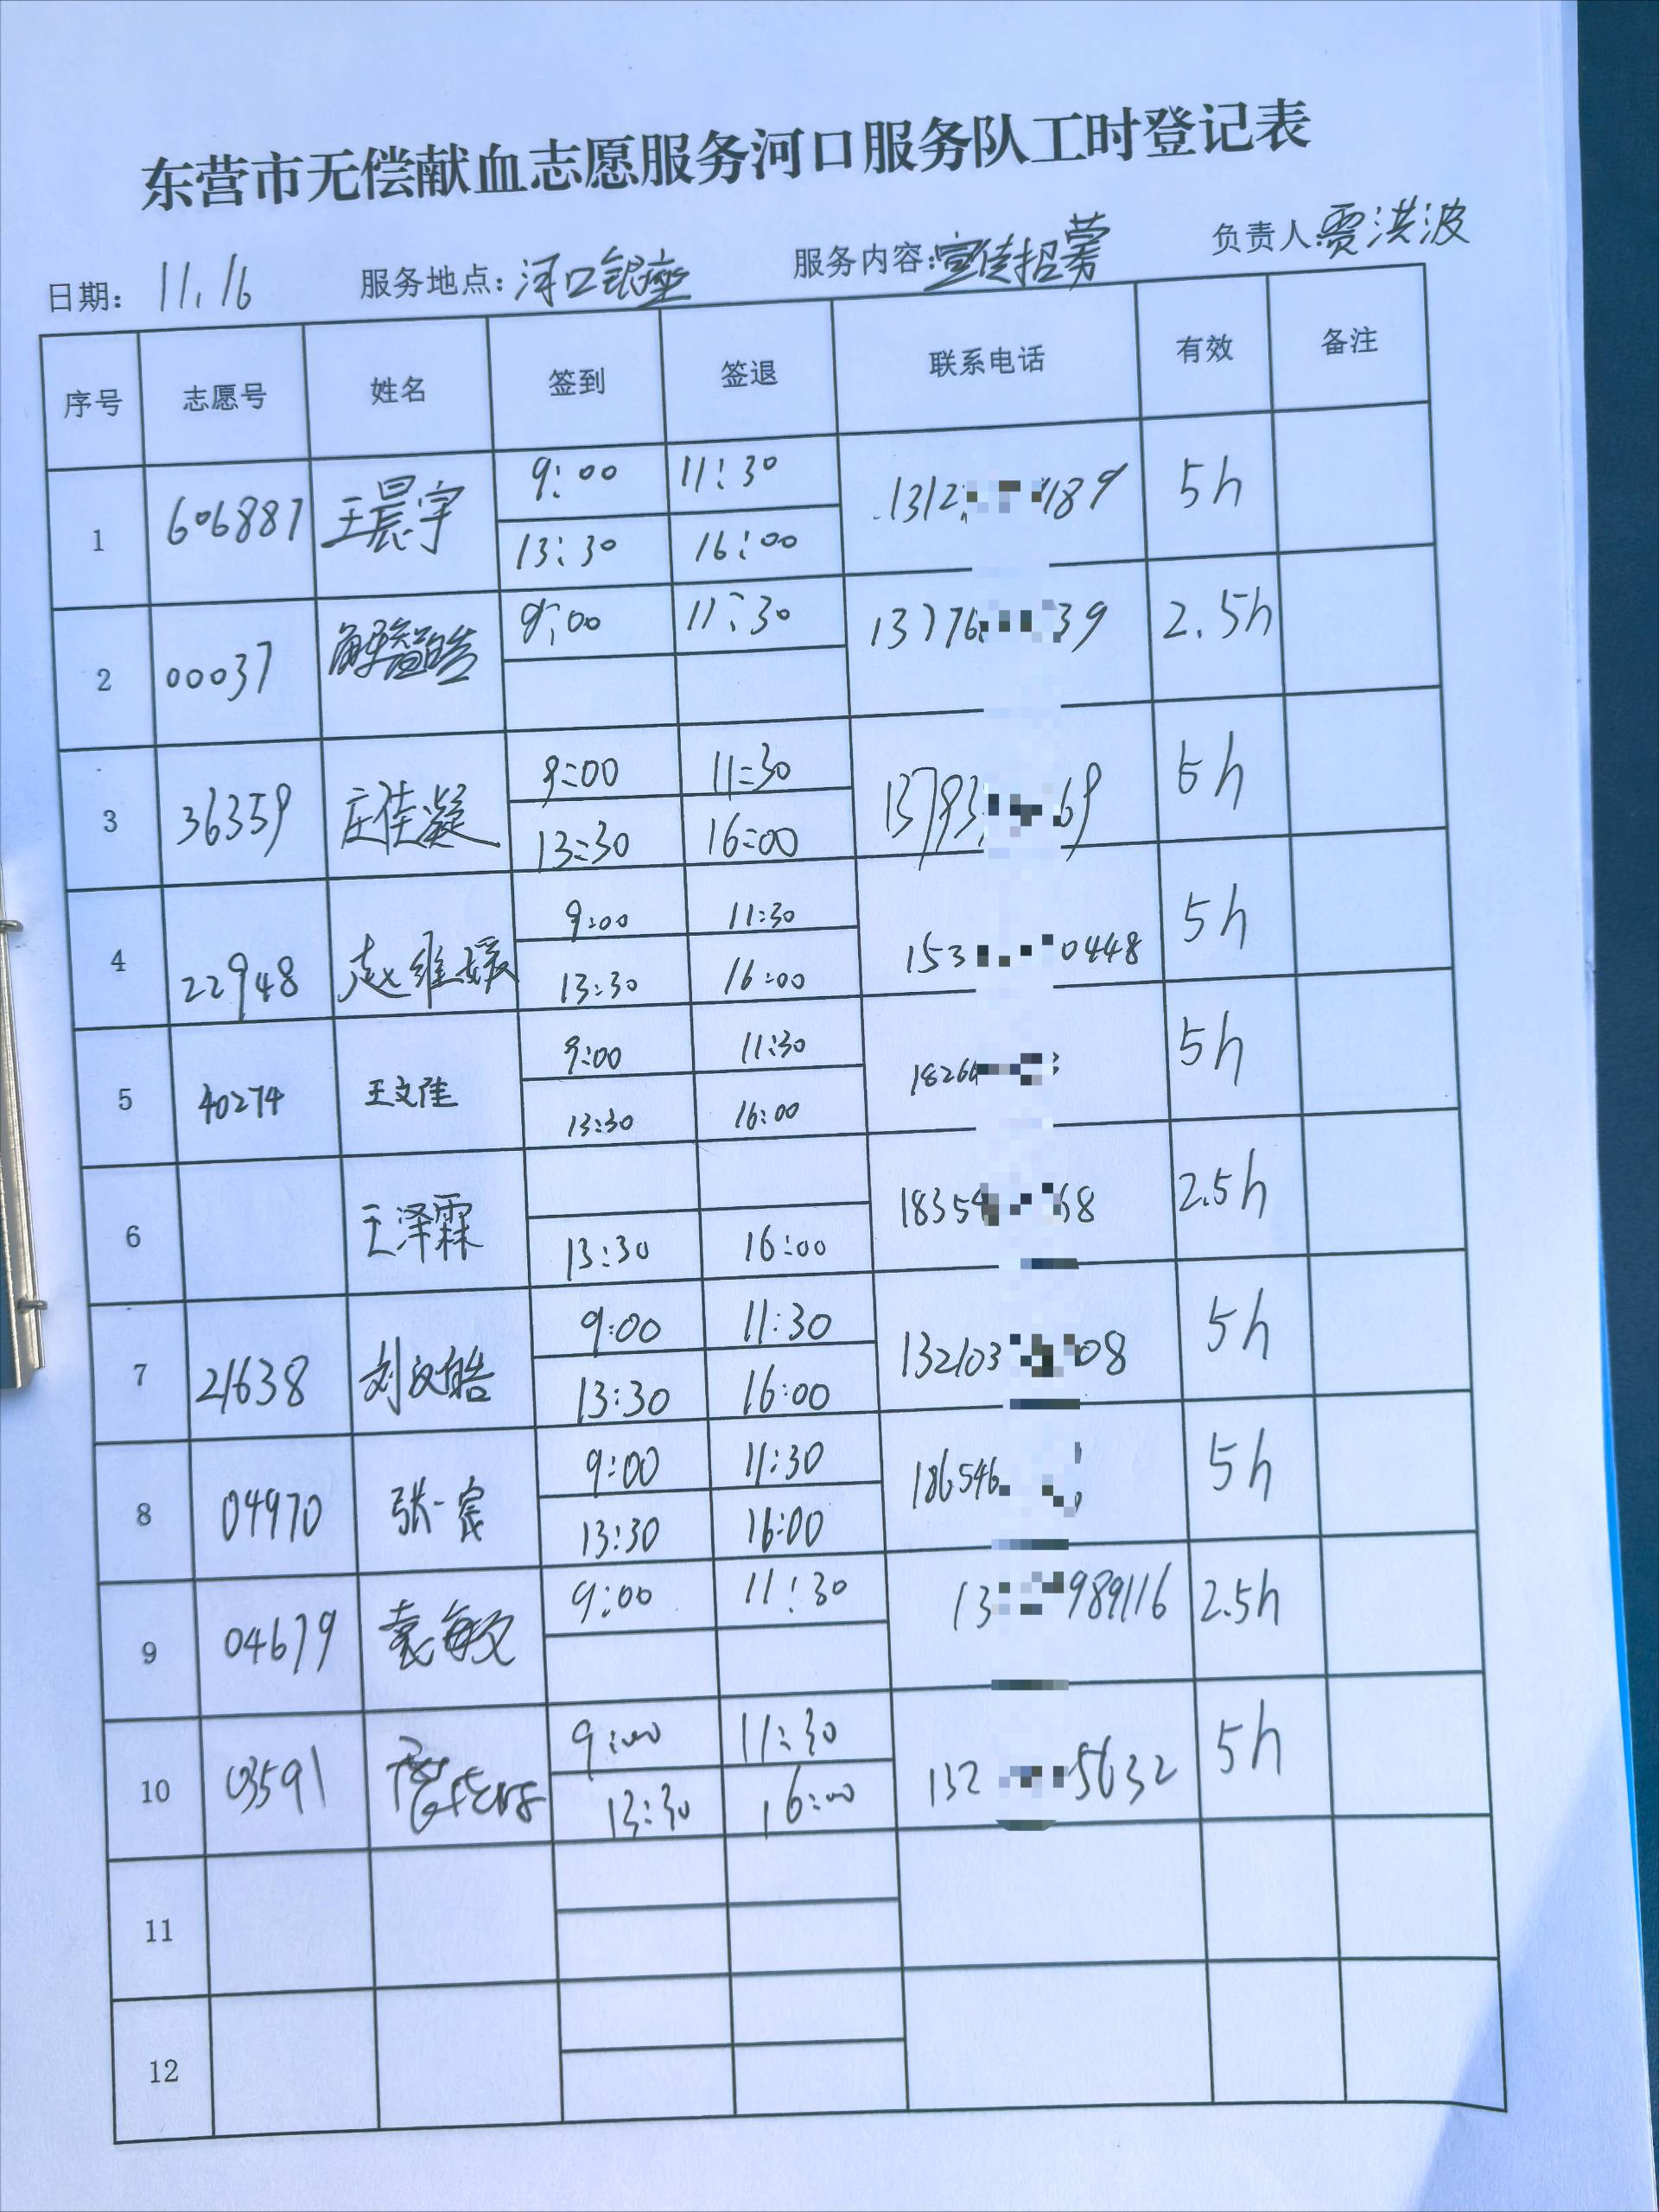 东营市无偿献血志愿服务河口服务队工时登记表
日期: 11.16 服务地点: 河口银座 服务内容: 宣传招募 负责人: 贾洪波
序号 志愿号 姓名 签到 签退 联系电话 有效 备注
1 606887 王晨宇 9:00 11:30 1312 189 5h
13:30 16:00
2 00037 解智皓 9:00 11:30 13776 39 2.5h
3 36359 庄佳凝 9:00 11:30 13793 69 5h
13:30 16:00
4 22948 赵维媛 9:00 11:30 153 0448 5h
13:30 16:00
5 40274 王文佳 9:00 11:30 1826 5h
13:30 16:00
6 王泽霖 18354 68 2.5h
13:30 16:00
7 21638 刘汉皓 9:00 11:30 132103 08 5h
13:30 16:00
8 04970 张一宸 9:00 11:30 186546 5h
13:30 16:00
9 04679 袁敏 9:00 11:30 13 989116 2.5h
10 03591 9:00 11:30 132 5632 5h
13:30 16:00
11
12